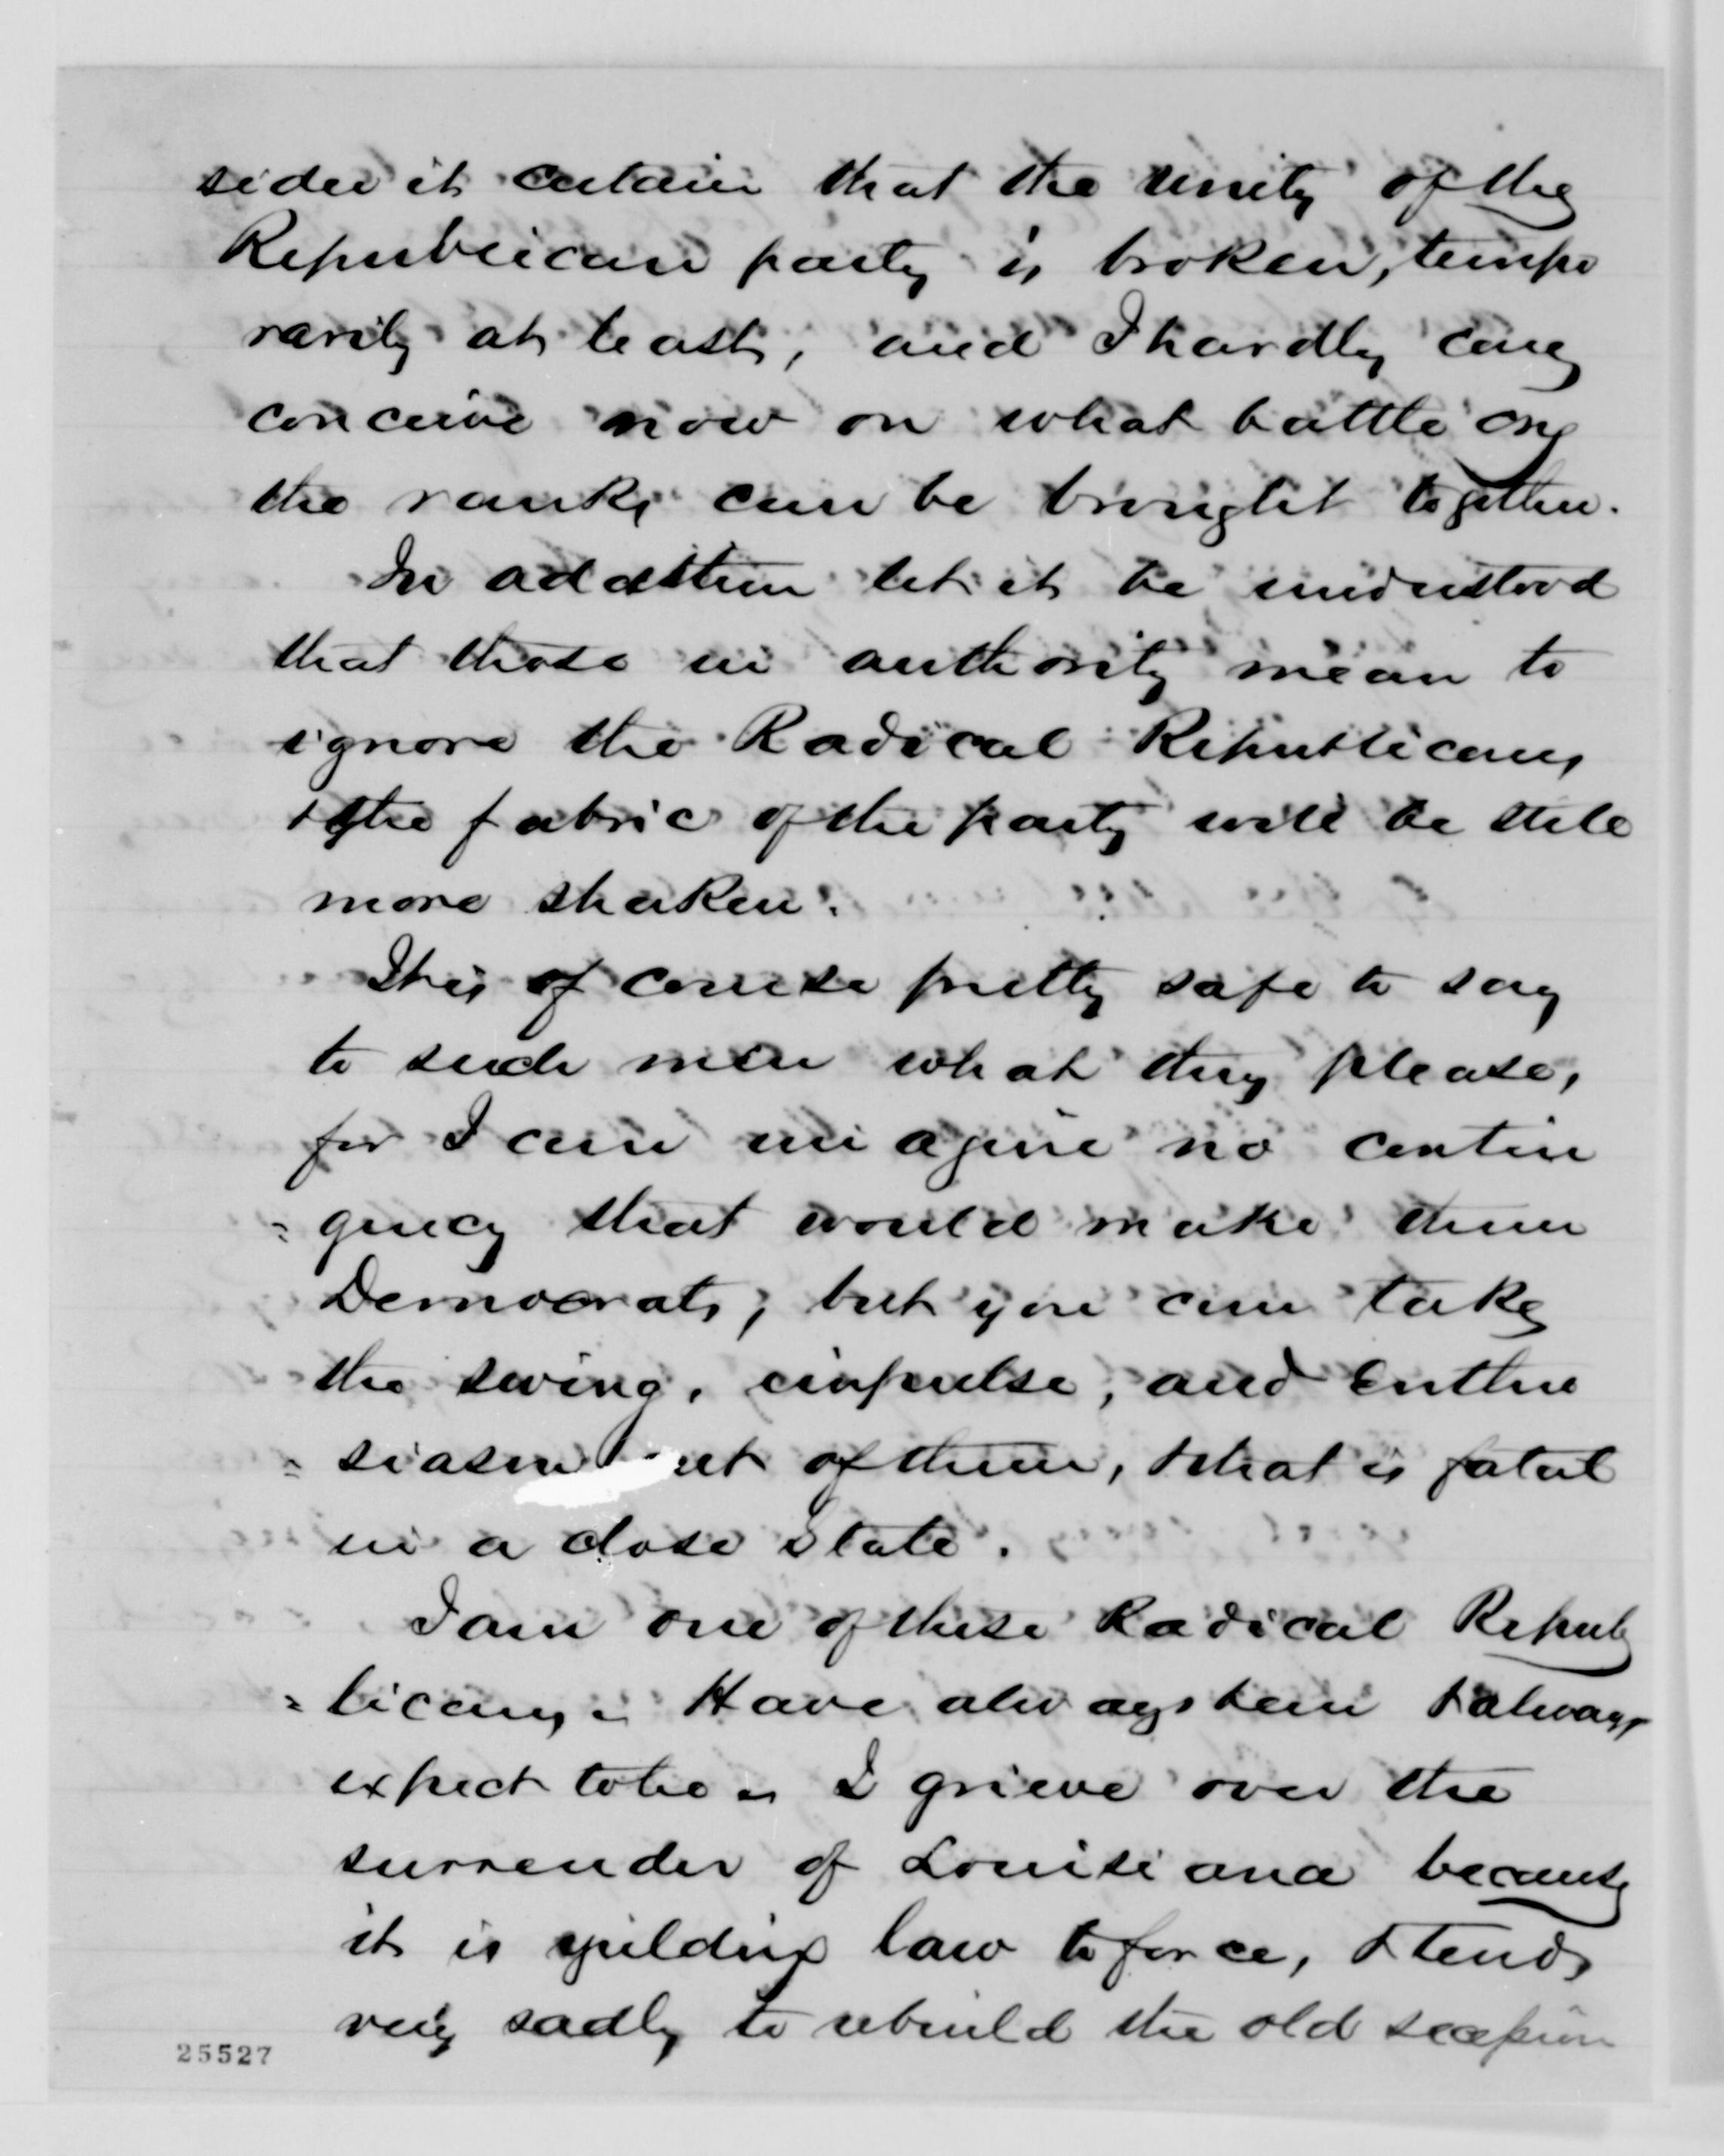 sider it certain that the unity of the
Republican party is broken, tempo
rarily at least, and I hardly can
conceive now on what battle cry
the ranks can be brought together.
In addition let it be understood
that those in authority mean to
ignore the Radical Republicans
& the fabric of the party will be still
more shaken.
It is of course pretty safe to say
to such men what they please,
for I can imagine no contin
=gency that would make them
Democrats; but you can take
the swing, impulse, and enthu
=siasm out of them, & that is fatal
in a close State.
I am one of these Radical Repub
=licans, Have always been & always
expect to be - I grieve over the
surrender of Louisiana because
it is yielding law to force, & tends
very sadly to rebuild the old
25527